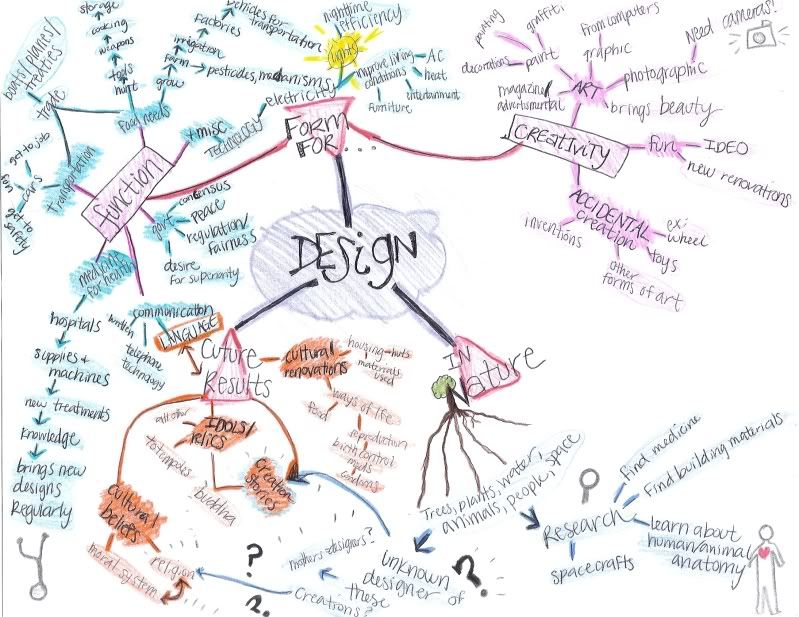 storage
cooking
weapons
tools
hunt
Factories
irrigation
farm
grow
vehicles for
transportation
pesticides, mechanisms
nighttime
efficiency
lights
electricity
improve living
conditions
AC
heat
entertainment
furniture
boats/planes/
treaties
trade
food needs
+ misc
TECHNOLOGY
FORM
FOR...
painting
graffiti
decorations
paint
from computers
graphic
Need cameras!
photographic
magazine/
ART
brings beauty
CREATIVITY
fun
IDEO
new renovations
ACCIDENTAL
creation
inventions
ex:
wheel
toys
other
forms of art
get to job
fun
cars
get to
safety
transportation
function
govt
consensus
peace
regulation/
fairness
desire
for superiority
medicine
for health
hospitals
supplies +
machines
new treatments
knowledge
brings new
designs
Regularly
DESIGN
communication
written
LANGUAGE
telephone
technology
Cuture
Results
cultural
renovations
housing-huts
materials
used
food
ways of life
reproduction
birth control
meds
condoms
all other
IDOLS/
relics
totempoles
buddha
Creation
stories
cultural
beliefs
moral system
religion
IN
Nature
Trees, plants, water,
animals, people, space
unknown
designer of
these
Creations?
mothers=designers?
?
?
?
Research
Find medicine
Find building materials
learn about
human/animal
anatomy
spacecrafts